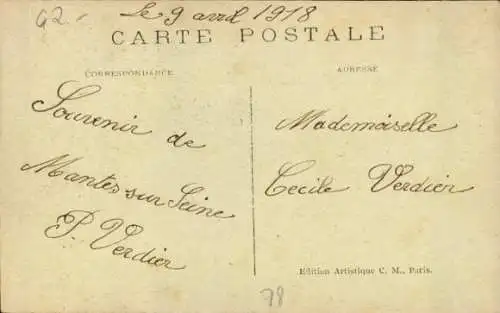 G2.
Le 9 avril 1918
CARTE POSTALE
CORRESPONDANCE
ADRESSE
Souvenir de
Mantes sur Seine
P. Verdier
Mademoiselle
Cecile Verdier
Edition Artistique C. M., Paris.
78